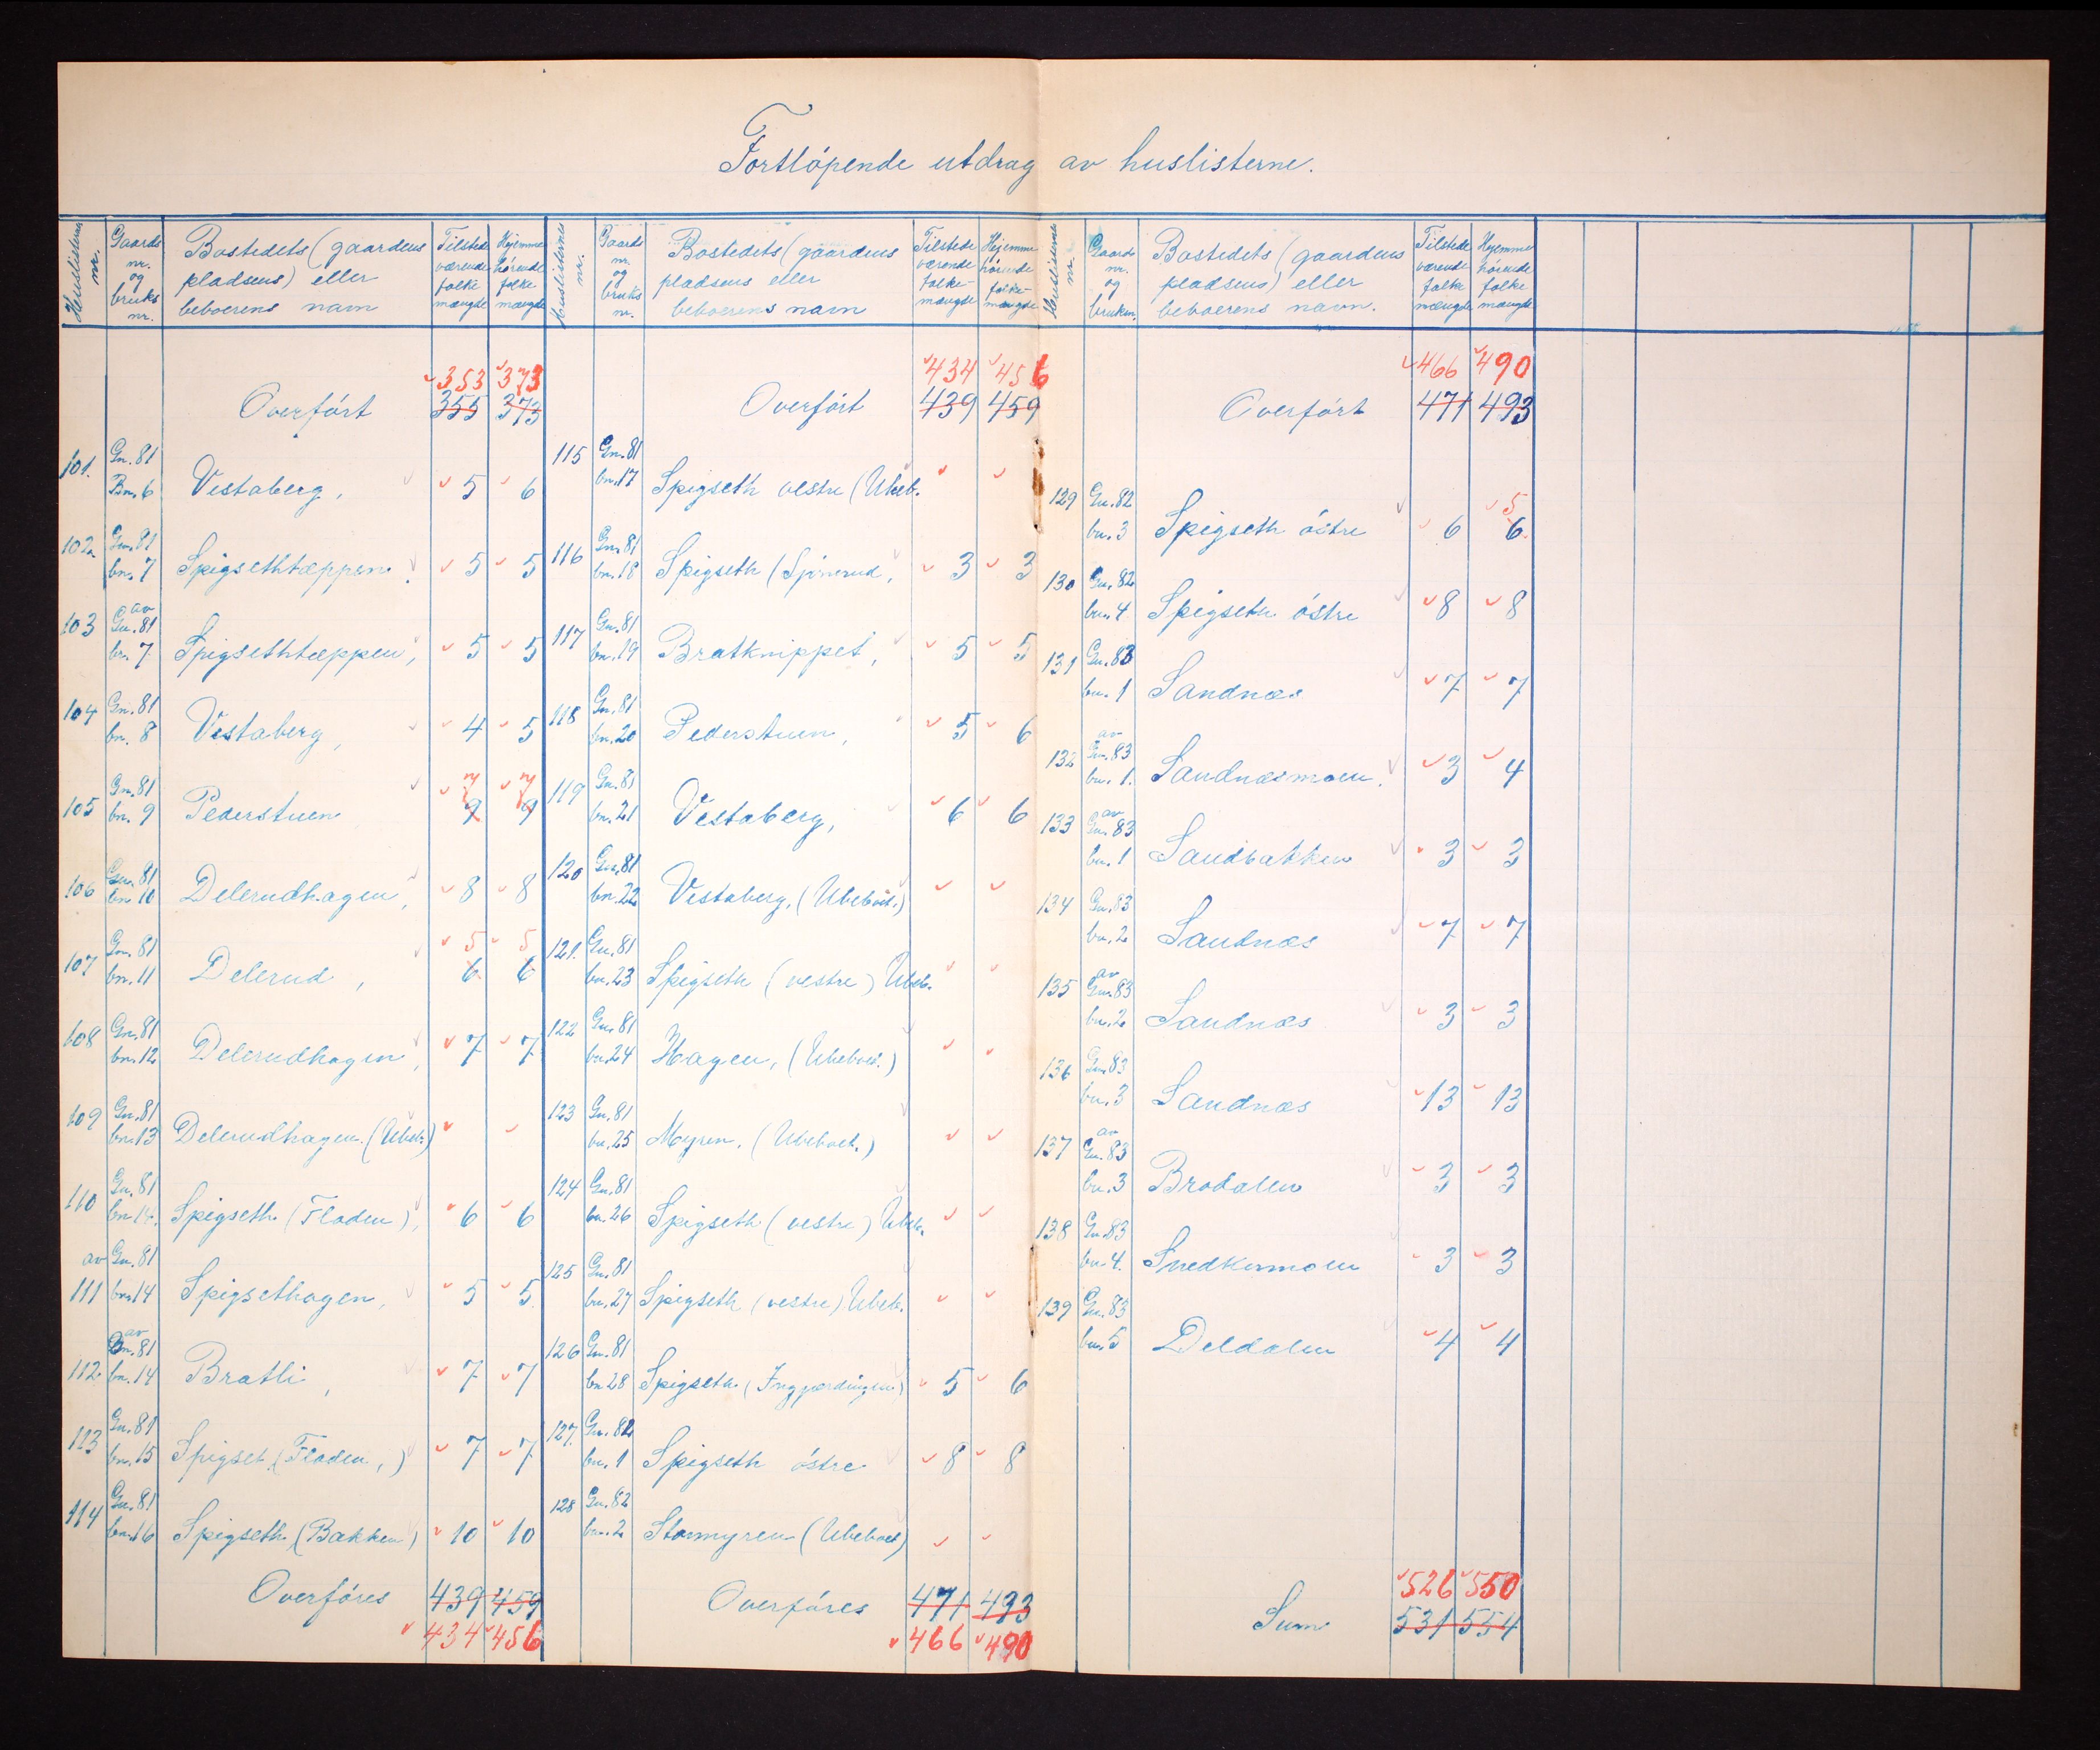 Fortløpende utdrag av huslisterne.
Huslisternes nr. | Gaards nr. og bruks nr. | Bostedets (gaardens pladsens) eller beboerens navn | Tilstede værende folke mængde | Hjemme hørende folke mængde
353 373
Overført 355 373
101. Gn. 81 Bn. 6 Vestaberg, 5 6
102. Gn. 81 bn. 7 Spigsethtæppen. 5 5
103 av Gn. 81 bn. 7 Spigsethtæppen, 5 5
104 Gn. 81 bn. 8 Vestaberg, 4 5
105 Gn. 81 bn. 9 Pederstuen 7 7
9 9
106 Gn. 81 bn. 10 Delerudhagen, 8 8
107 Gn. 81 bn. 11 Delerud, 5 5
6 6
108 Gn. 81 bn. 12 Delerudhagen, 7 7
109 Gn. 81 bn. 13 Delerudhagen. (Ubeb.)
110 Gn. 81 bn. 14. Spigseth (Floden), 6 6
111 av Gn. 81 bn. 14 Spigsethagen, 5 5.
112 av Gn. 81 bn. 14 Bratli, 7 7
113 Gn. 81 bn. 15 Spigset (Floden,) 7 7
114 Gn. 81 bn. 16 Spigseth (Bakken) 10 10
Overføres 439 459
434 456
Huslisternes nr. | Gaards nr. og bruks nr. | Bostedets (gaardens pladsens eller beboerens navn | Tilstede værende folke-mængde | Hjemme hørende folke-mængde
434 456
Overført 439 459
115 Gn. 81 bn. 17 Spigseth vestre (Ubeb.
116 Gn. 81 bn. 18 Spigseth (Sjønerud, 3 3
117 Gn. 81 bn. 19 Bratknippet, 5 5
118 Gn. 81 bn. 20 Pederstuen, 5 6
119 Gn. 81 bn. 21 Vestaberg, 6 6
120 Gn. 81 bn. 22 Vestaberg. (Ubeboet.)
121. Gn. 81 bn. 23 Spigseth (vestre) Ubeb.
122 Gn. 81 bn. 24 Hagen, (Ubeboet.)
123 Gn. 81 bn. 25 Myren. (Ubeboet.)
124 Gn. 81 bn. 26 Spigseth (vestre) Ubeb.
125 Gn. 81 bn. 27 Spigseth (vestre) Ubeb.
126 Gn. 81 bn. 28 Spigseth (Inggjerdingen) 5 6
127. Gn. 82 bn. 1 Spigseth østre 8 8
128 Gn. 82 bn. 2 Stormyren (Ubeboet)
Overføres 471 493
466 490
Huslisternes nr. | Gaards nr. og bruksn. | Bostedets (gaardens pladsens) eller beboerens navn. | Tilstede værende folke mængde | Hjemme hørende folke mængde
466 490
Overført 471 493
129 Gn. 82 bn. 3 Spigseth østre 6 5
6.
130 Gn. 82 bn. 4 Spigseth østre 8 8
131 Gn. 83 bn. 1 Sandnæs 7 7
132 av Gn. 83 bn. 1. Sandnæsmoen. 3 4
133 av Gn. 83 bn. 1 Sandbakken 3 3
134 Gn. 83 bn. 2 Sandnæs 7 7
135 av Gn. 83 bn. 2 Sandnæs 3 3
136 Gn. 83 bn. 3 Sandnæs 13 13
137 av Gn. 83 bn. 3 Brodalen 3 3
138 Gn. 83 bn. 4. Snedkermoen 3 3
139 Gn. 83 bn. 5 Deldalen 4 4
526 550
Sum 531 554